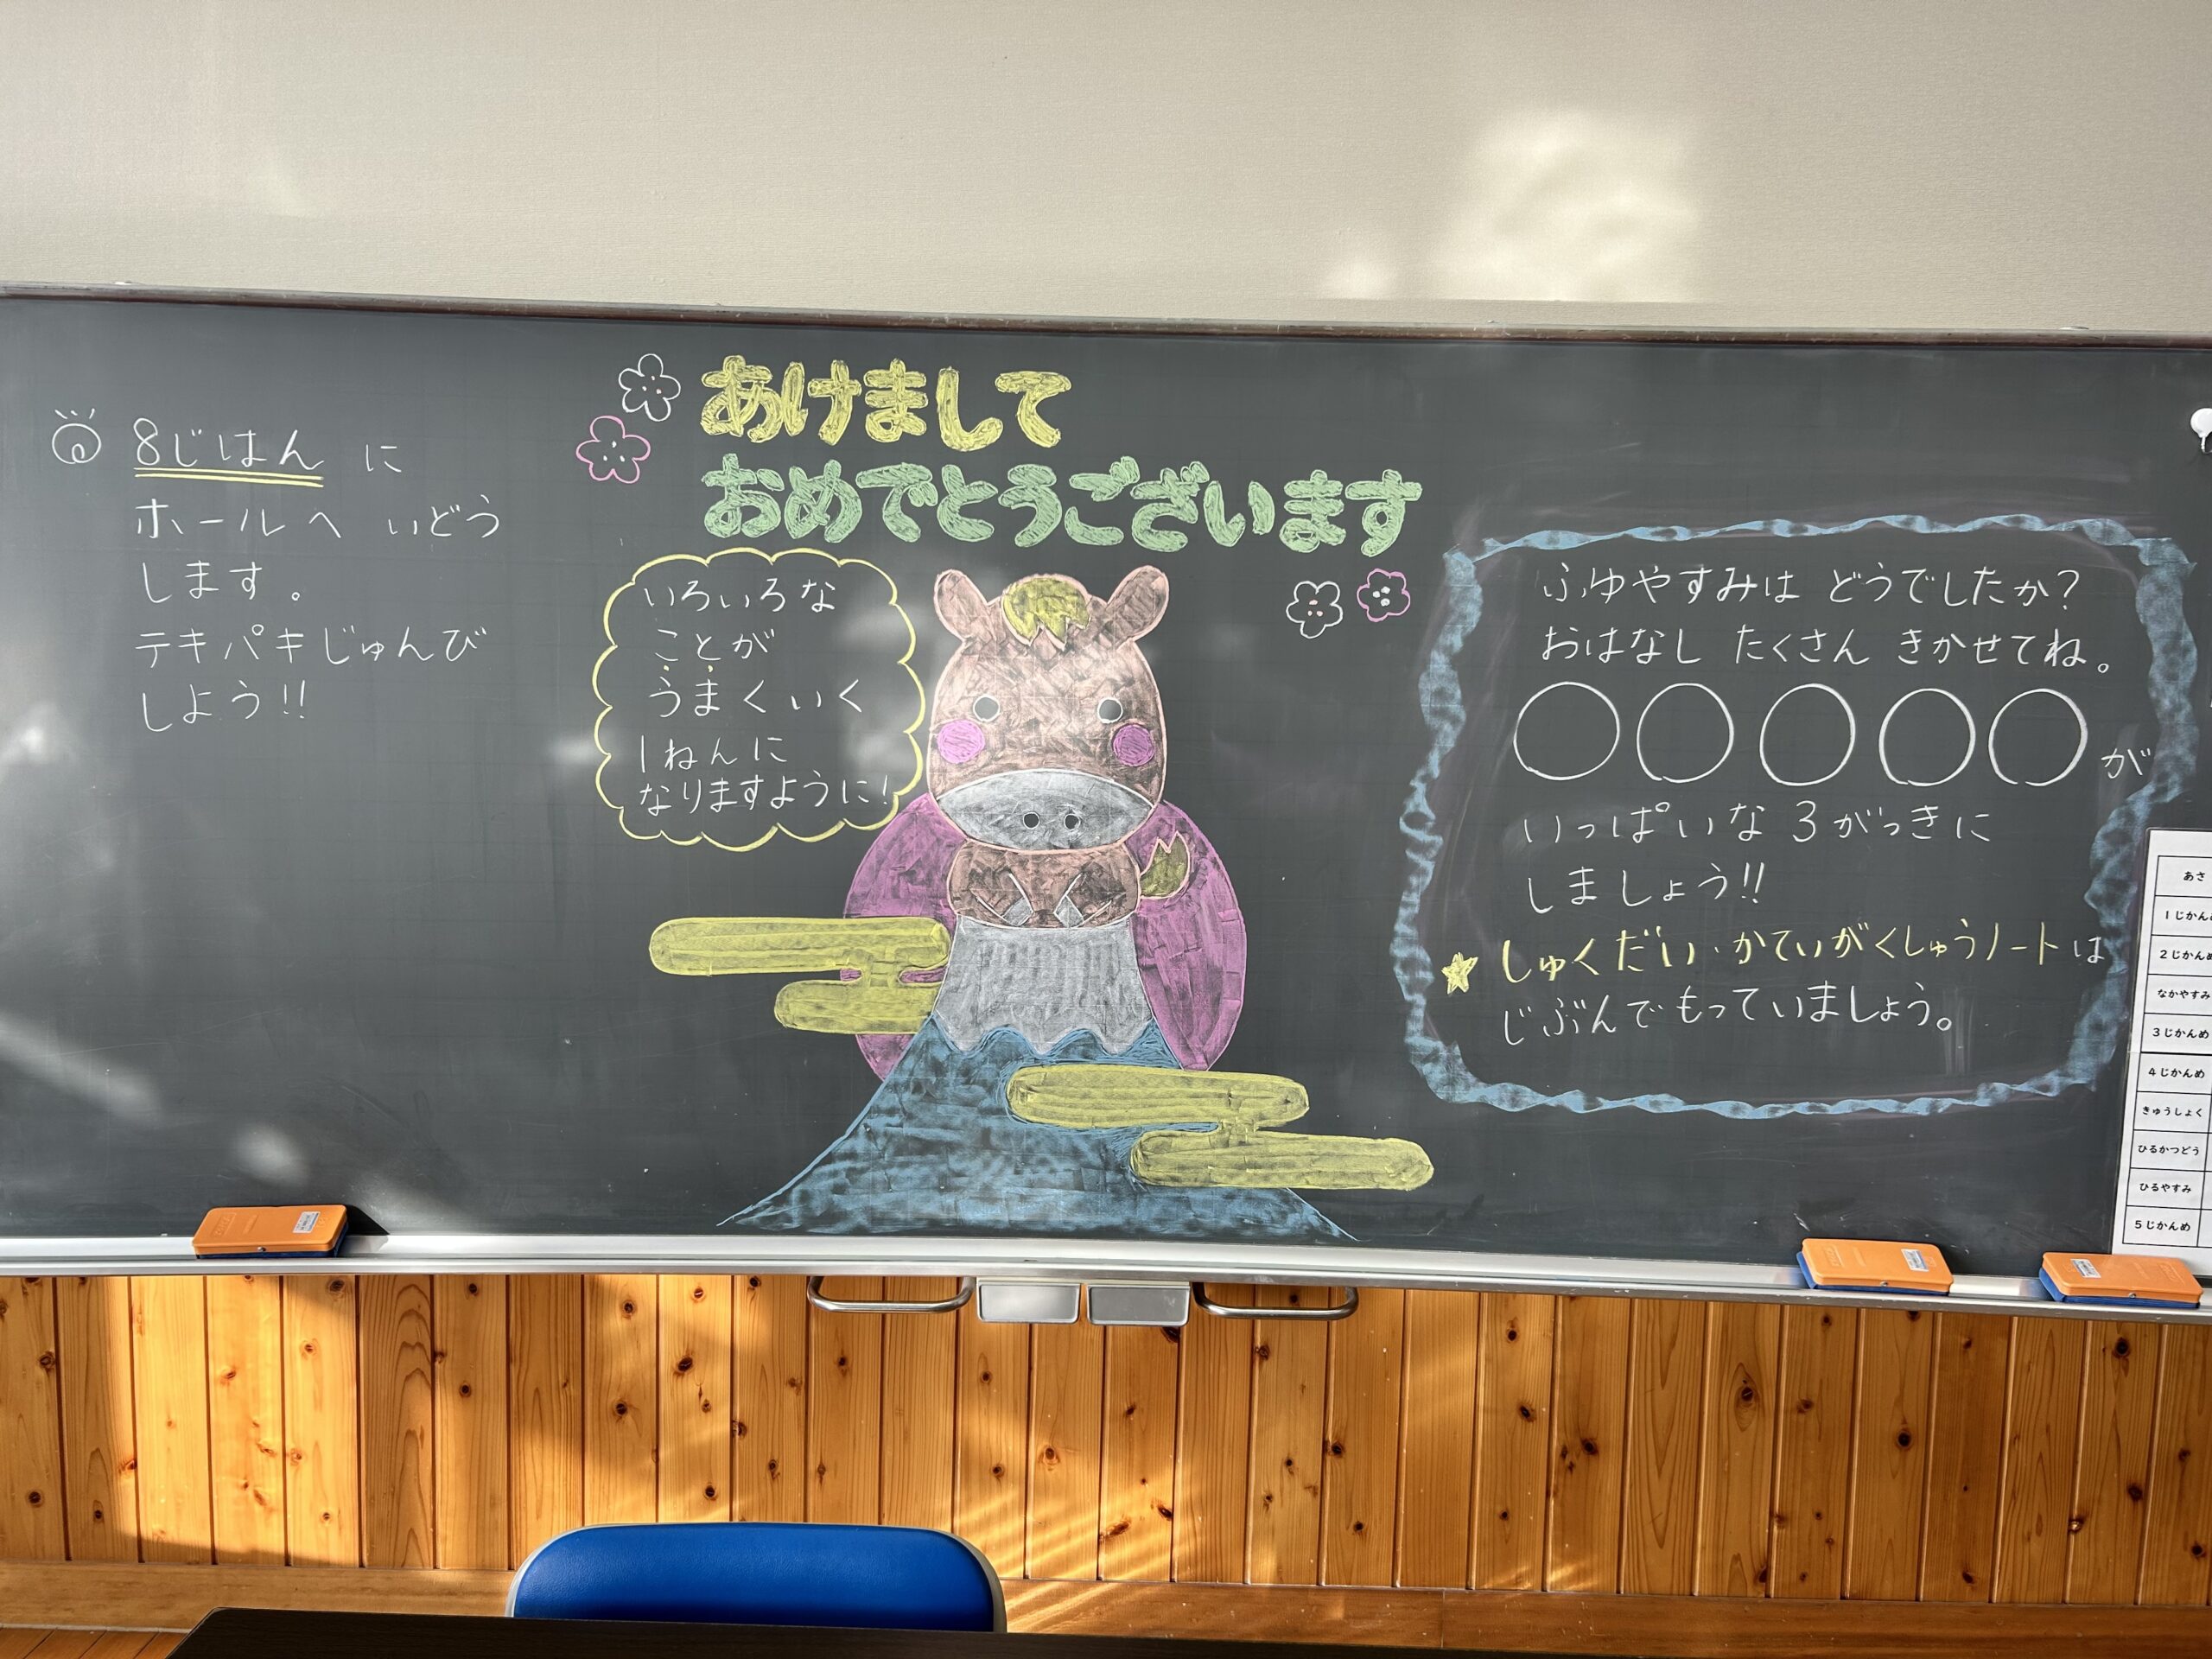 8じはん に
ホールへ いどう
します。
テキパキじゅんび
しよう!!
あけまして
おめでとうございます
いろいろな
ことが
うまくいく
1ねんに
なりますように!
ふゆやすみは どうでしたか?
おはなし たくさん きかせてね。
○○○○○が
いっぱいな 3がっきに
しましょう!!
★しゅくだい・かていがくしゅうノートは
じぶんでもっていましょう。
あさ
1じかんめ
2じかんめ
なかやすみ
3じかんめ
4じかんめ
きゅうしょく
ひるかつどう
ひるやすみ
5じかんめ